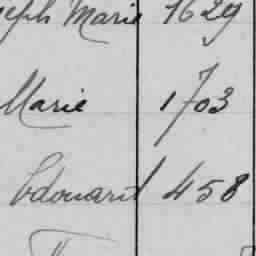 seph Marie 1629
Marie 1703
Edouard 458